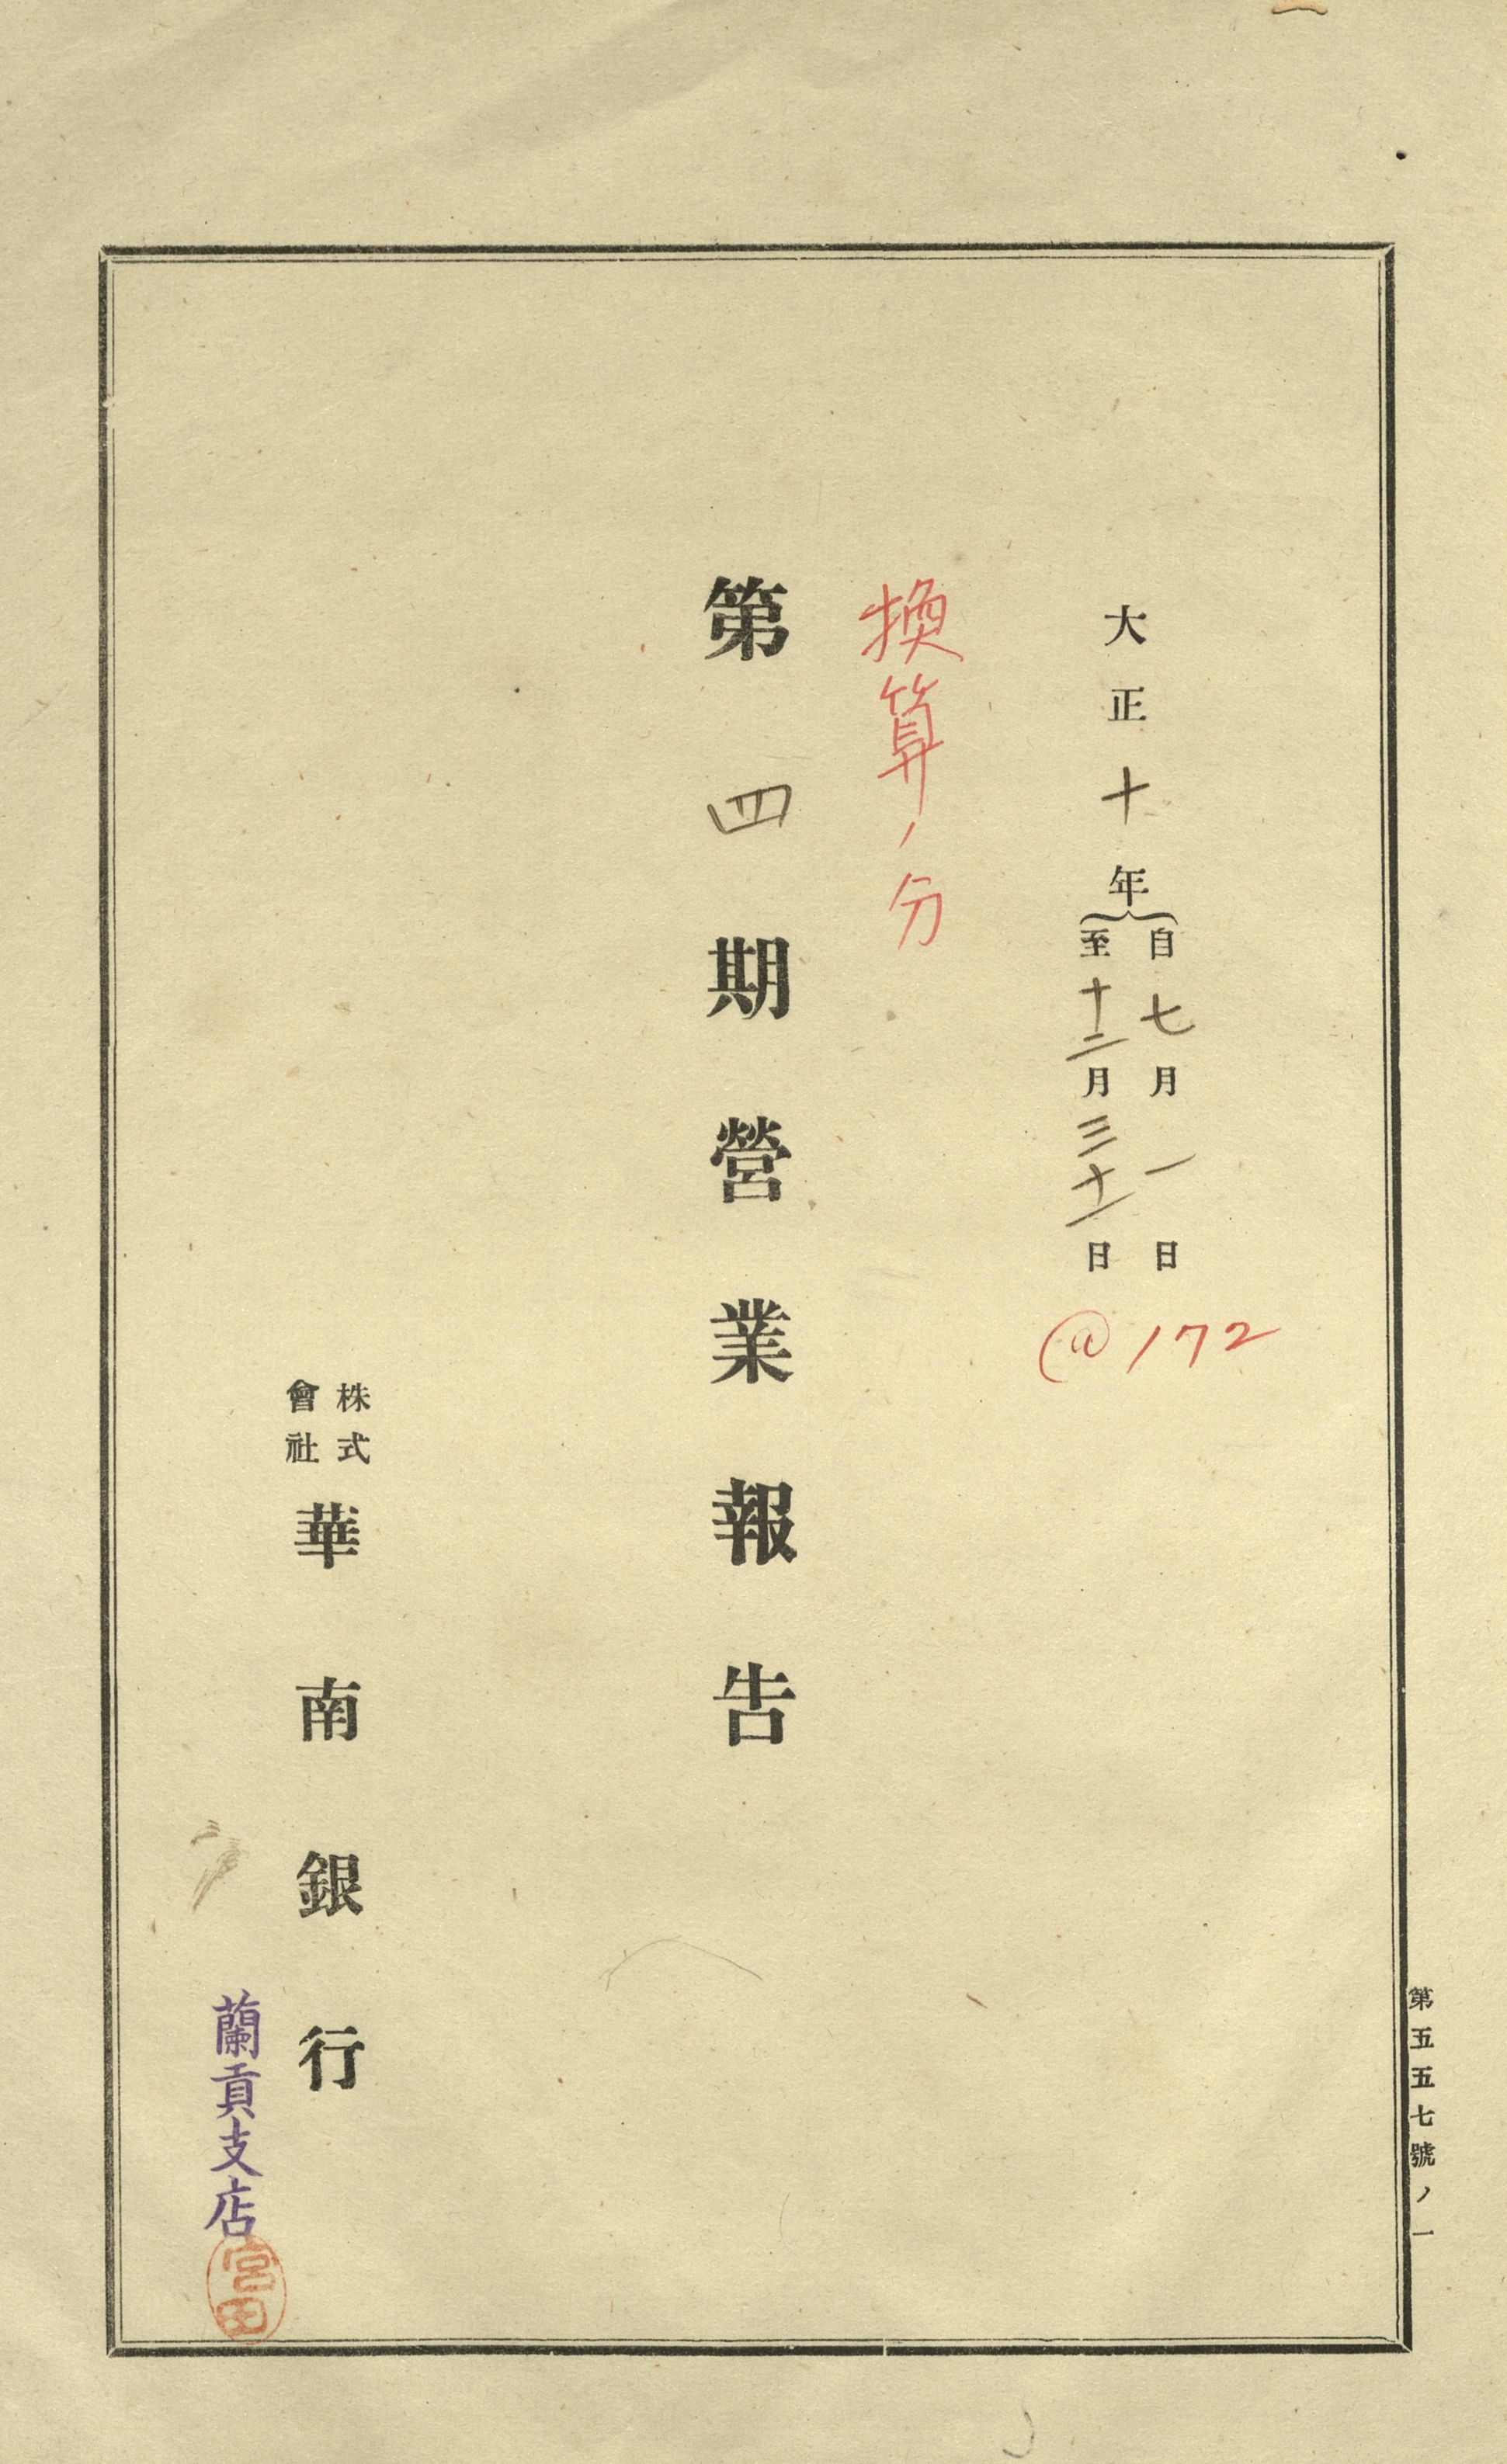 大正十年
自七月一日
至十二月三十一日
@172
換算ノ分
第四期營業報告
株式
會社
華南銀行
蘭貢支店
宮田
第五五七號ノ一